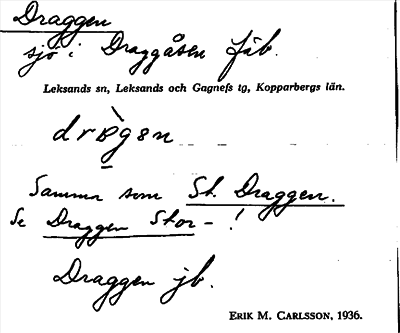 Draggen
sjö i Draggåsen fäb.
Leksands sn, Leksands och Gagnefs tg, Kopparbergs län.
Samma som St. Draggen.
Se Draggen Stor- !
Draggen jb.
ERIK M. CARLSSON, 1936.